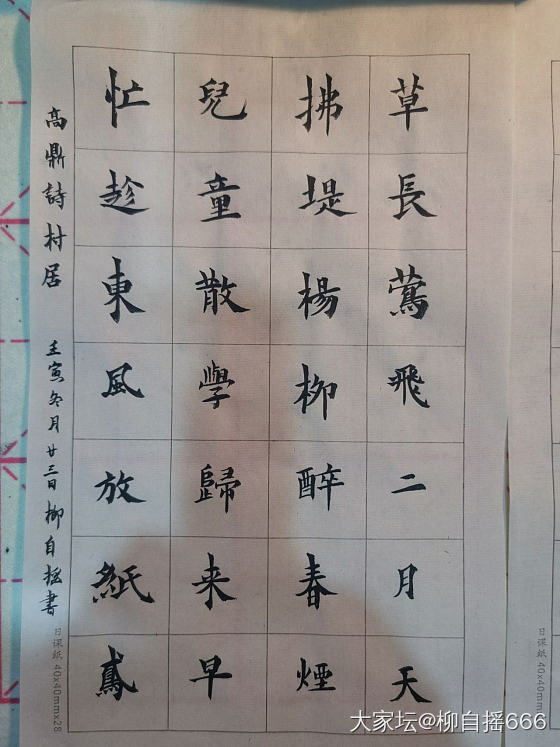 草長鶯飛二月天
拂堤楊柳醉春煙
兒童散學歸来早
忙趁東風放紙鳶
高鼎詩村居 壬寅冬月廿三日柳自摇書
日课纸 40x40mmx28
日课纸 40x40mm
大家坛@柳自摇666